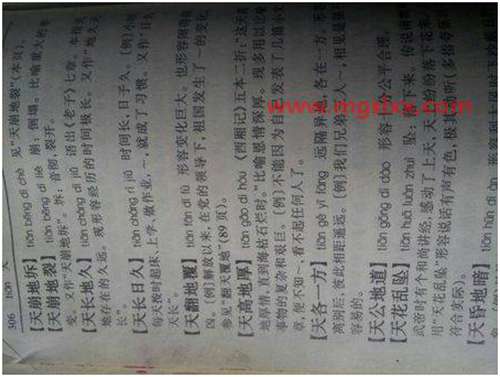 306 tiān 天
【天崩地坼】 tiān bēng dì chè 见"天崩地裂"(本页)。
【天崩地裂】 tiān bēng dì liè 崩：倒塌。比喻重大的事
变。又作"天崩地坼"。坼：音彻，裂开。
【天长地久】 tiān cháng dì jiǔ 语出《老子》七章。本指天
地存在的久远。现形容经历的时间极长。又作"地久天
长"。
【天长日久】 tiān cháng rì jiǔ 时间长，日子久。[例]小强
每天按时起床、上学、做作业，～，就成了习惯。又作"日久
天长"。
【天翻地覆】 tiān fān dì fù 形容变化巨大。也形容闹得很
凶。[例]解放以来，在党的领导下，祖国发生了～的变化。
参见"翻天覆地"(89页)。
【天高地厚】 tiān gāo dì hòu 《西厢记》五本二折："这天高
地厚情，直到海枯石烂时。"比喻恩情深厚。现多用以比喻
事物的复杂和艰巨。[例]不能因为自己发表了几篇小文
章，便不知～，看不起任何人了。
【天各一方】 tiān gè yī fāng 远隔异地，各在一方。形容
离别后，彼此相距遥远。[例]我们兄弟二人～，相见是很不
容易的。
【天公地道】 tiān gōng dì dào 形容十分公平合理。
【天花乱坠】 tiān huā luàn zhuì 坠：落下来。传说南朝梁
武帝时有个和尚讲经，感动了上天，天花纷纷落下来。后
用"天花乱坠"形容说话有声有色，极其动听(多指夸张不
符合实际)。
【天昏地暗】 tiān hūn dì àn
www.mgsixx.com